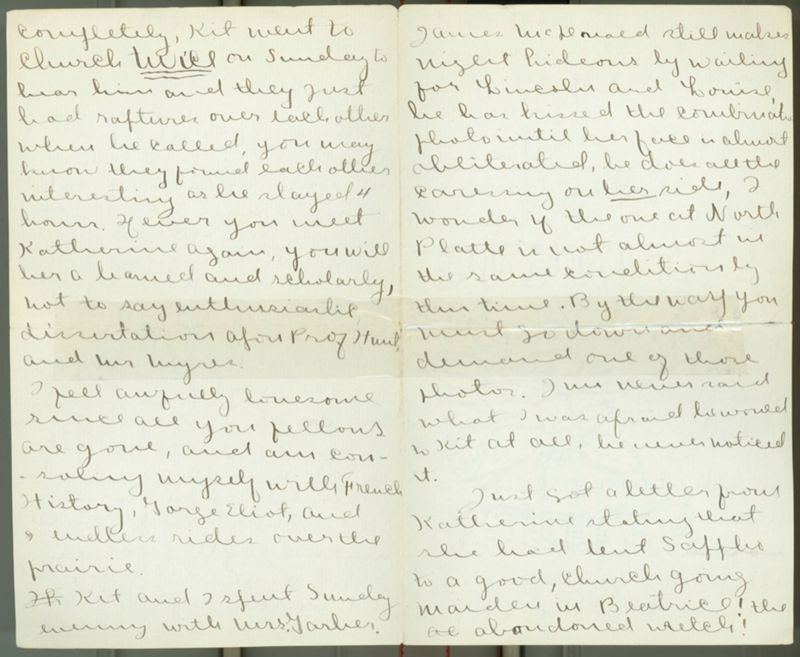 completely, Kit went to
Church twice on Sunday to
hear him and they just
had raftures over each other
when he called, you may
know they found each other
interesting as he stayed 4
hours. If ever you meet
Katherine again, you will
her a learned and scholarly,
not to say enthusiastic,
dissertation afon Prof Hunt
and Mr Myres.
I feel awfully lonesome
since all you fellows
are gone, and am con-
-soling myself with French
History, Gorge Eliot, and
endless rides over the
prairie.
Kit and I spent Sunday
evening with Mrs. Garber.
James McDonald still makes
night hideous by wailing
for Lincoln and Louise,
he has kissed the combination
photo until her face is almost
obliterated, he does all the
caressing on her side, I
wonder if the one at North
Platte is not almost in
the same condition by
this time. By the way you
must go down and
demand one of those
photos. Jim never said
what I was afraid he would
to Kit at all, he never noticed
it.
Just got a letter from
Katherine stating that
she had lent Sappho
to a good, church going
maiden in Beatrice! the
abandoned wretch!